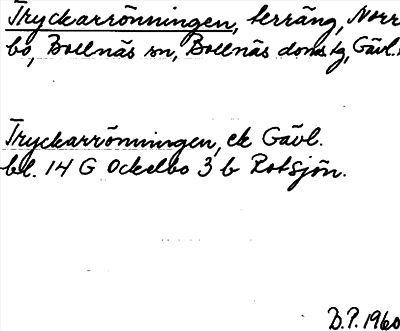 Tryckarrönningen, terräng, Norr
bo, Bollnäs sn, Bollnäs doms tg, Gävl.
Tryckarrönningen, ek Gävl.
bl. 14 G Ockelbo 3 b Rotsjön.
D.P. 1960